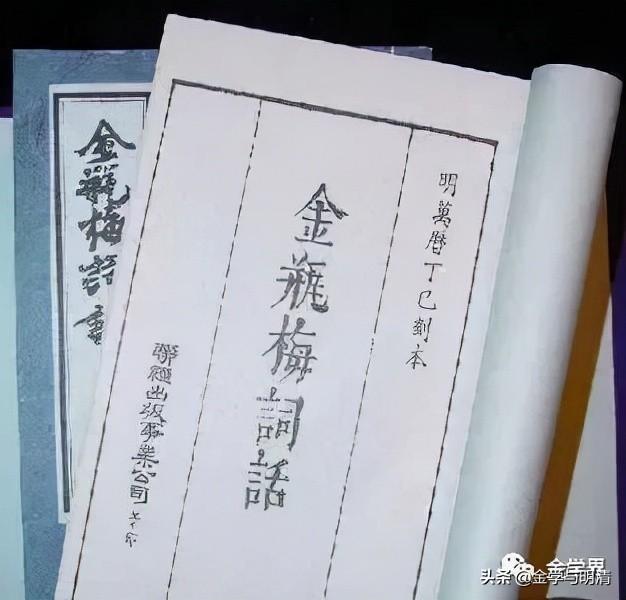 明萬曆丁巳刻本
金瓶梅詞話
聯經出版事業公司
金瓶梅詞話
金学界
头条 @金学与明清